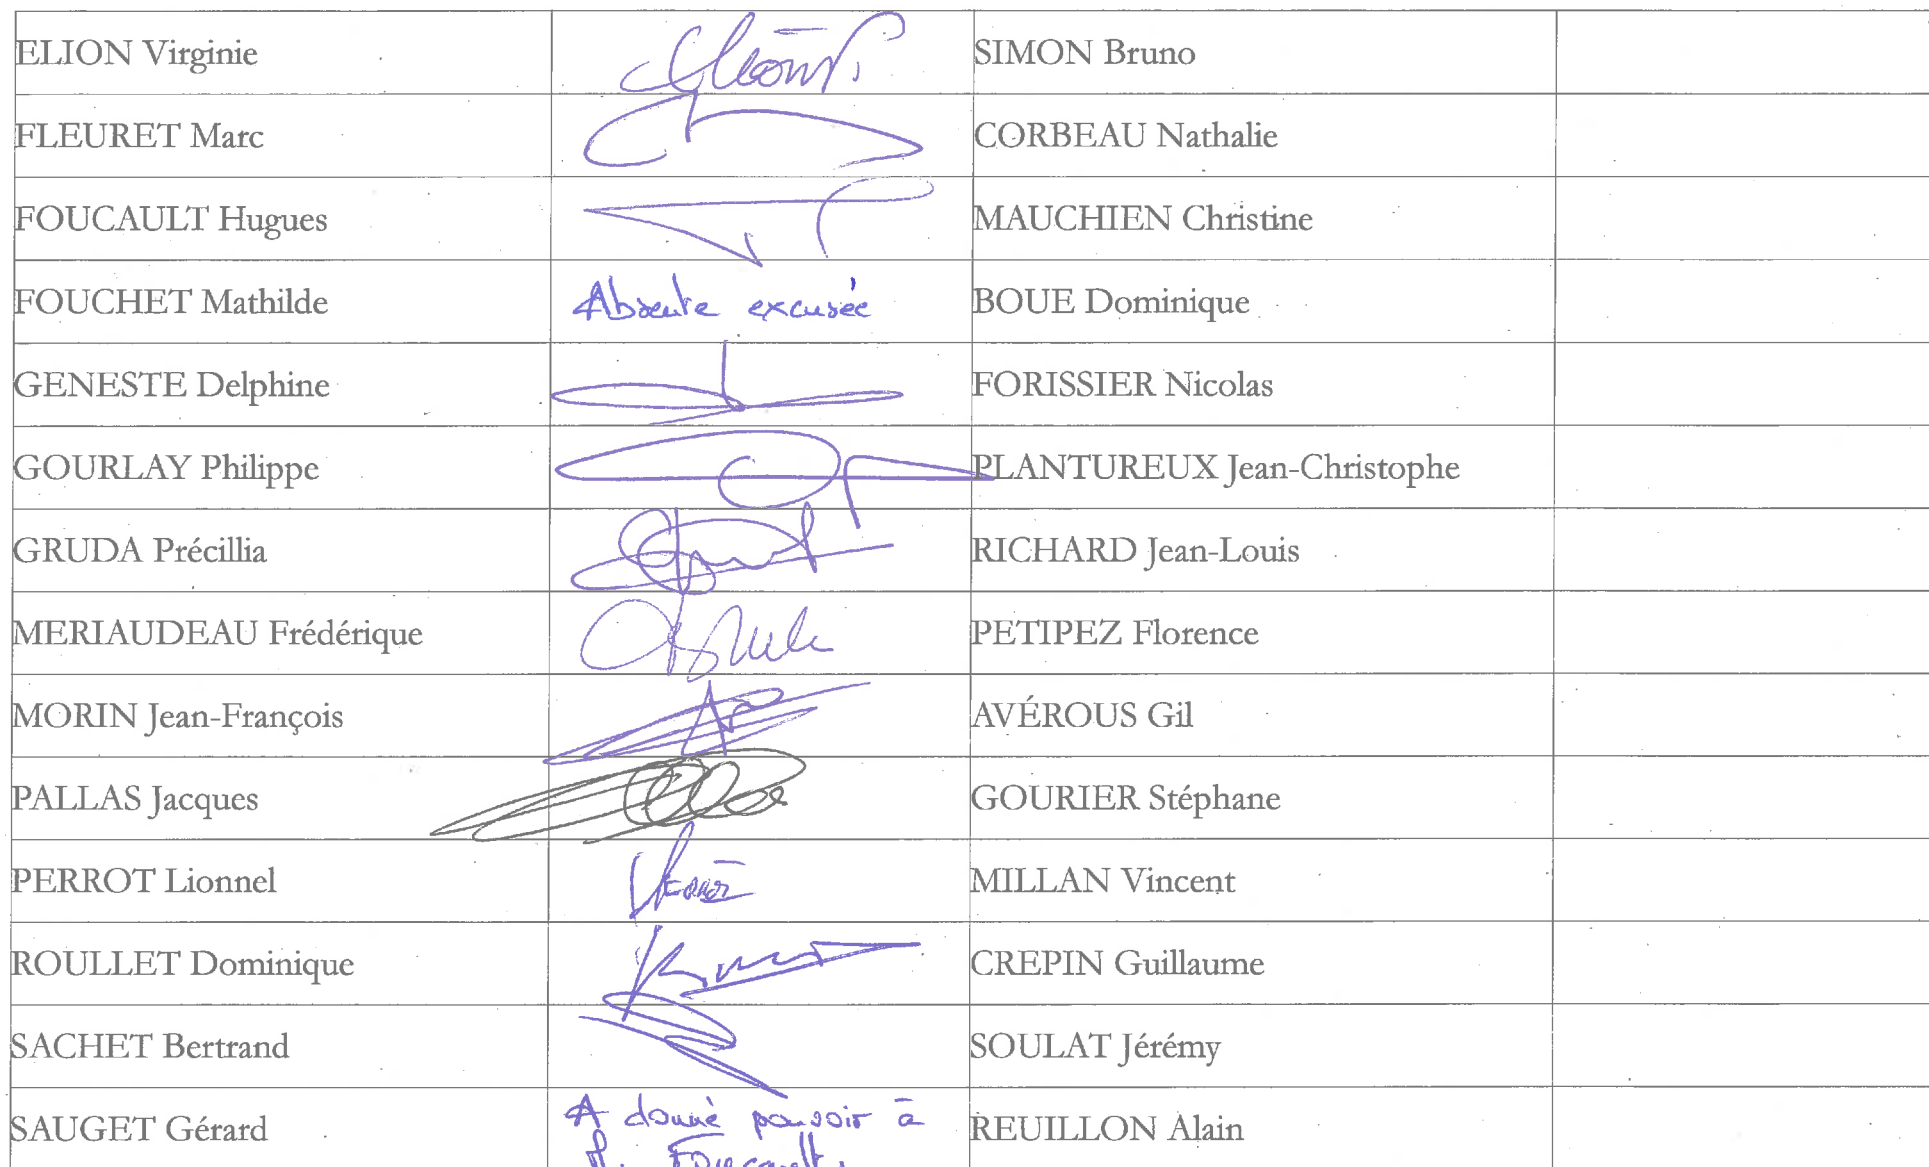 ELION Virginie SIMON Bruno
FLEURET Marc CORBEAU Nathalie
FOUCAULT Hugues MAUCHIEN Christine
FOUCHET Mathilde Absente excusée BOUE Dominique
GENESTE Delphine FORISSIER Nicolas
GOURLAY Philippe PLANTUREUX Jean-Christophe
GRUDA Précillia RICHARD Jean-Louis
MERIAUDEAU Frédérique PETIPEZ Florence
MORIN Jean-François AVÉROUS Gil
PALLAS Jacques GOURIER Stéphane
PERROT Lionnel MILLAN Vincent
ROULLET Dominique CREPIN Guillaume
SACHET Bertrand SOULAT Jérémy
SAUGET Gérard A donné pouvoir à REUILLON Alain
Foucault